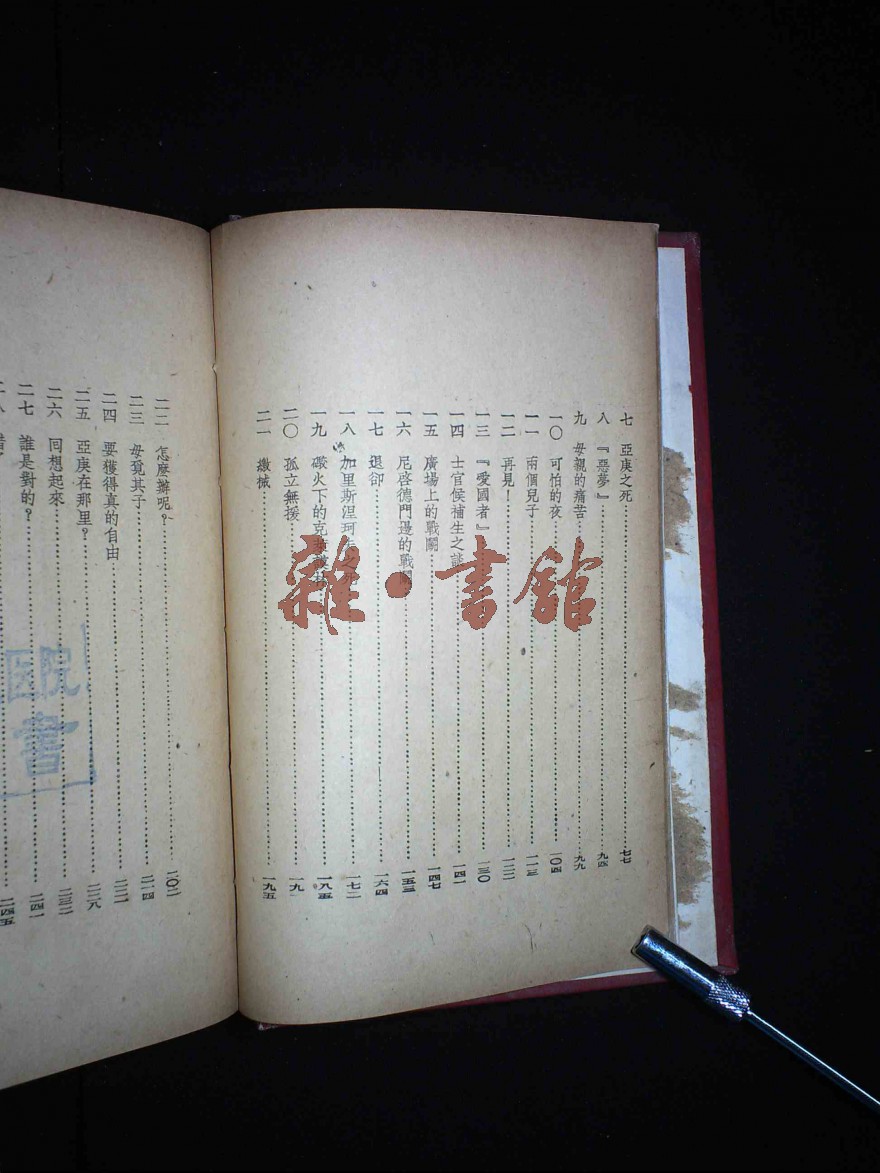 七 亞庚之死 七七
八 『惡夢』 九四
九 母親的痛苦 九九
一〇 可怕的夜 一〇四
一一 兩個兒子 一一三
一二 再見！ 一二二
一三 『愛國者』 一三〇
一四 士官候補生之談 一四一
一五 廣場上的戰鬭 一四七
一六 尼啓德門邊的戰鬭 一五三
一七 退卻 一六四
一八 加里斯涅珂 一七二
一九 礮火下的克 一八五
二〇 孤立無援 一九
二一 繳械 一九五
二二 怎麼辦呢？ 二〇二
二三 母覓其子 二一四
二四 要獲得真的自由
二五 亞庚在那里？ 二二八
二六 回想起來 二三二
二七 誰是對的？ 二四一
二八 二四五
雜·書館
医院
書